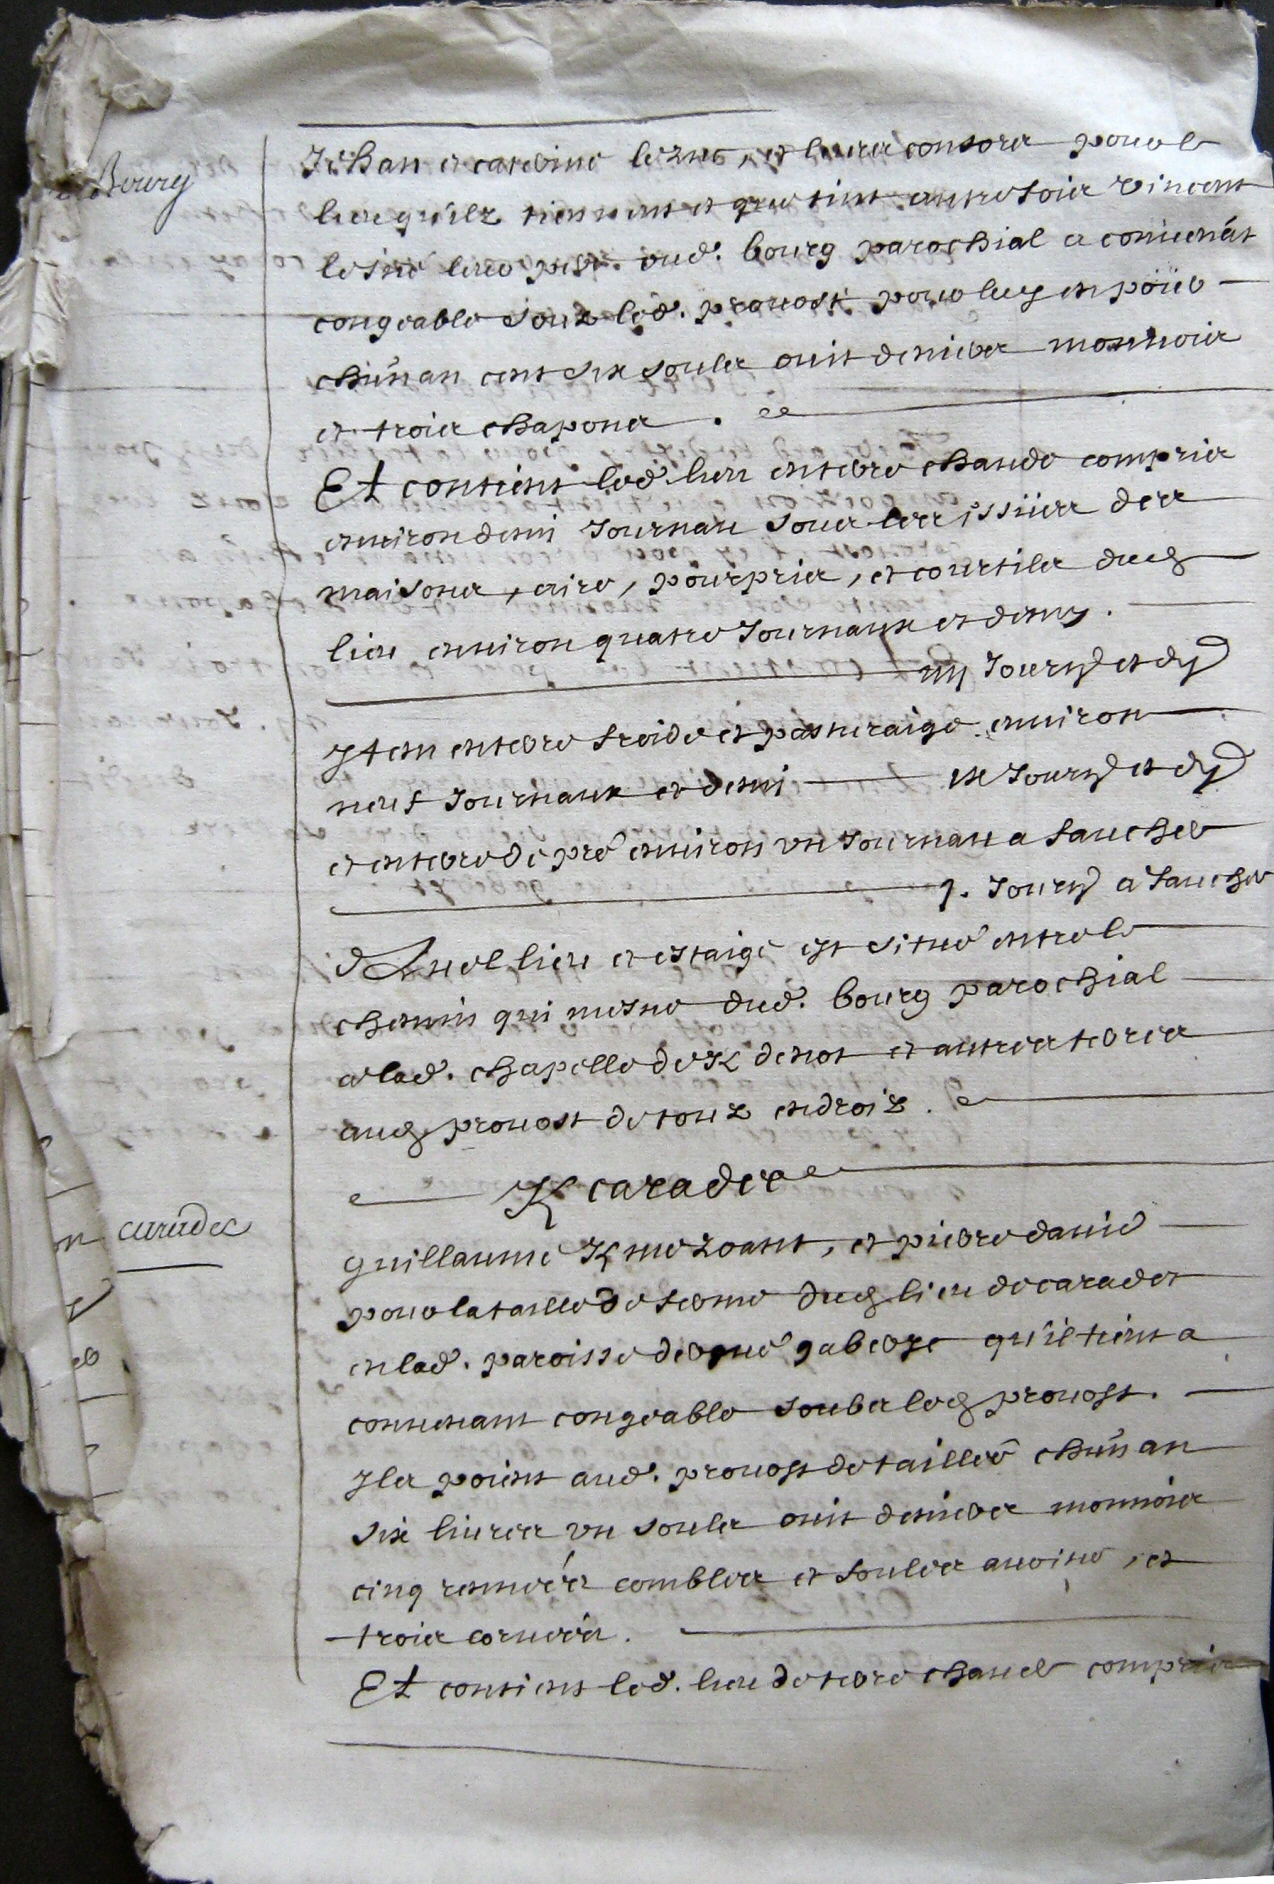 Bourg
Jehan et caterine lesne, et leurs consors pour le
lieu quilz tiennent et que tint autrefois vincent
lesne leur pere oud. bourg parochial a conuenãt
congeable soubz led. preuost pour luy en poier
chũn an cent six soulz ouit deniers monnoie
et trois chapons.
Et contient led. lieu en terre chaude compris
enuiron demi Journau soubz les issues des
maisons, aire, pourpris, et courtilz dud
lieu enuiron quatre Journaux et demy.
iiij Journ et dy
Item en terre froide et pasturaige enuiron
neuf Journaux et demi ix Journ et dy
et en terre de pré enuiron vn Journau a faucher
j. Journ a faucher
Quel lieu et estaige est situé entre le
chemin qui mesne dud. bourg parochial
a lad. chapelle de K denot et autres terres
aud preuost de touz endroiz.
K caradec
caradec
guillaume K merzoant, et pierre dauid
pour la taille de ferme dud lieu de caradec
en lad. paroisse dergué gaberic qu'il tient a
conuenant congeable soubz led preuost.
Ilz poient aud. preuost de taillée chũn an
six liures vn soulz ouit deniers monnoie
cinq rennées combles et foulées auoine, et
trois coruées.
Et contient led. lieu de terre chaude compris